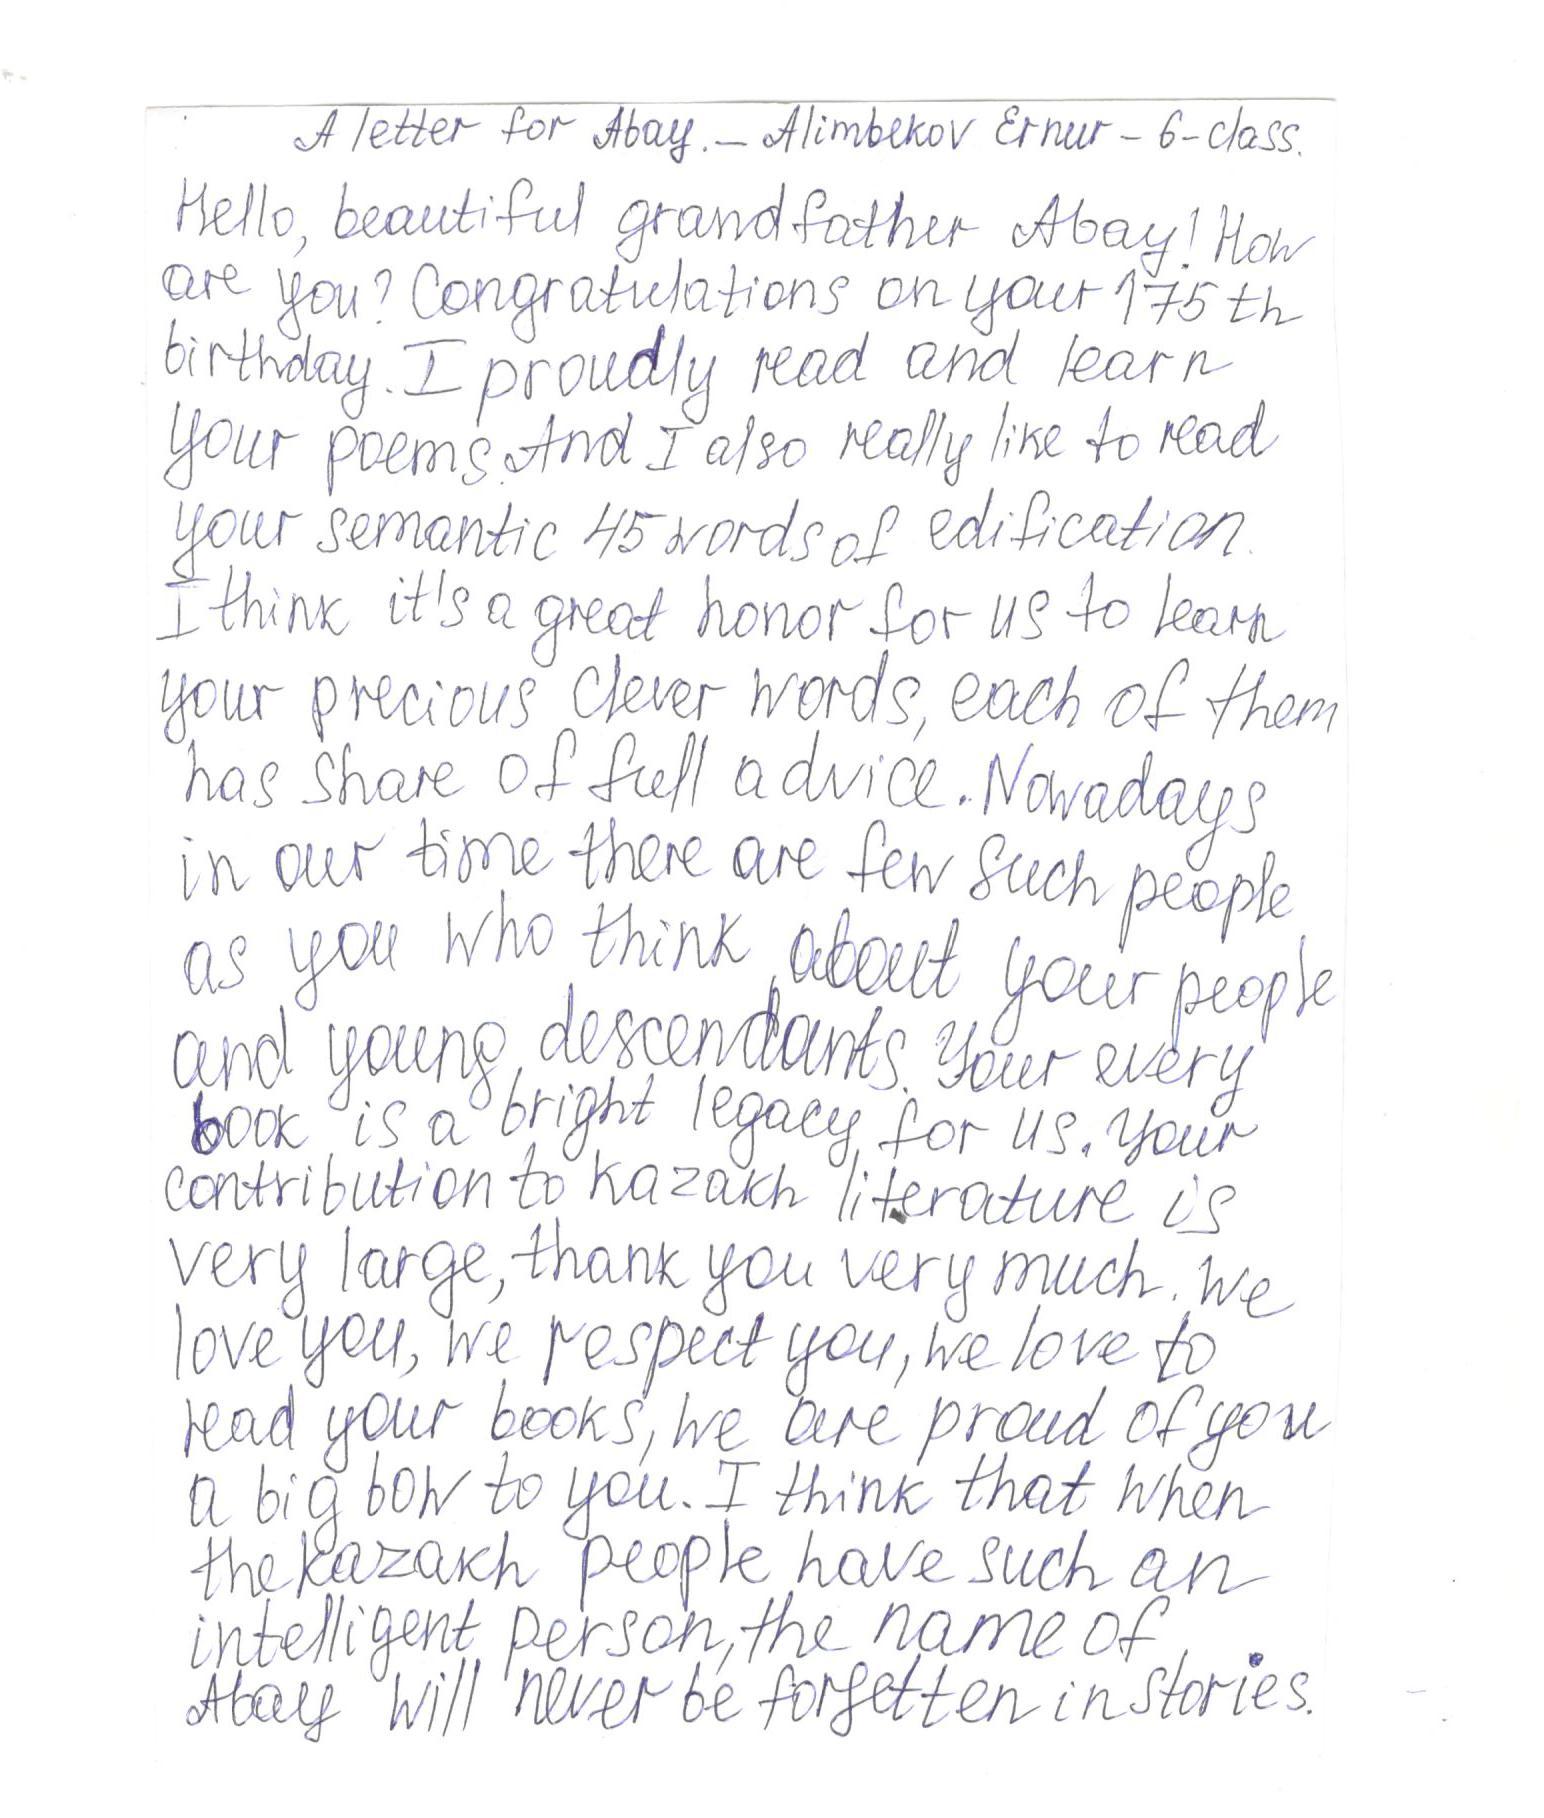 A letter for Abay. – Alimbekov Ernur – 6-class.
Hello, beautiful grandfather Abay! How
are you? Congratulations on your 175th
birthday. I proudly read and learn
your poems. And I also really like to read
your semantic 45 words of edification.
I think it's a great honor for us to learn
your precious clever words, each of them
has share of full advice. Nowadays
in our time there are few such people
as you who think about your people
and young descendants. Your every
book is a bright legacy for us. Your
contribution to kazakh literature is
very large, thank you very much. We
love you, we respect you, we love to
read your books, we are proud of you
a big bow to you. I think that when
the kazakh people have such an
intelligent person, the name of
Abay will never be forgetten in stories.